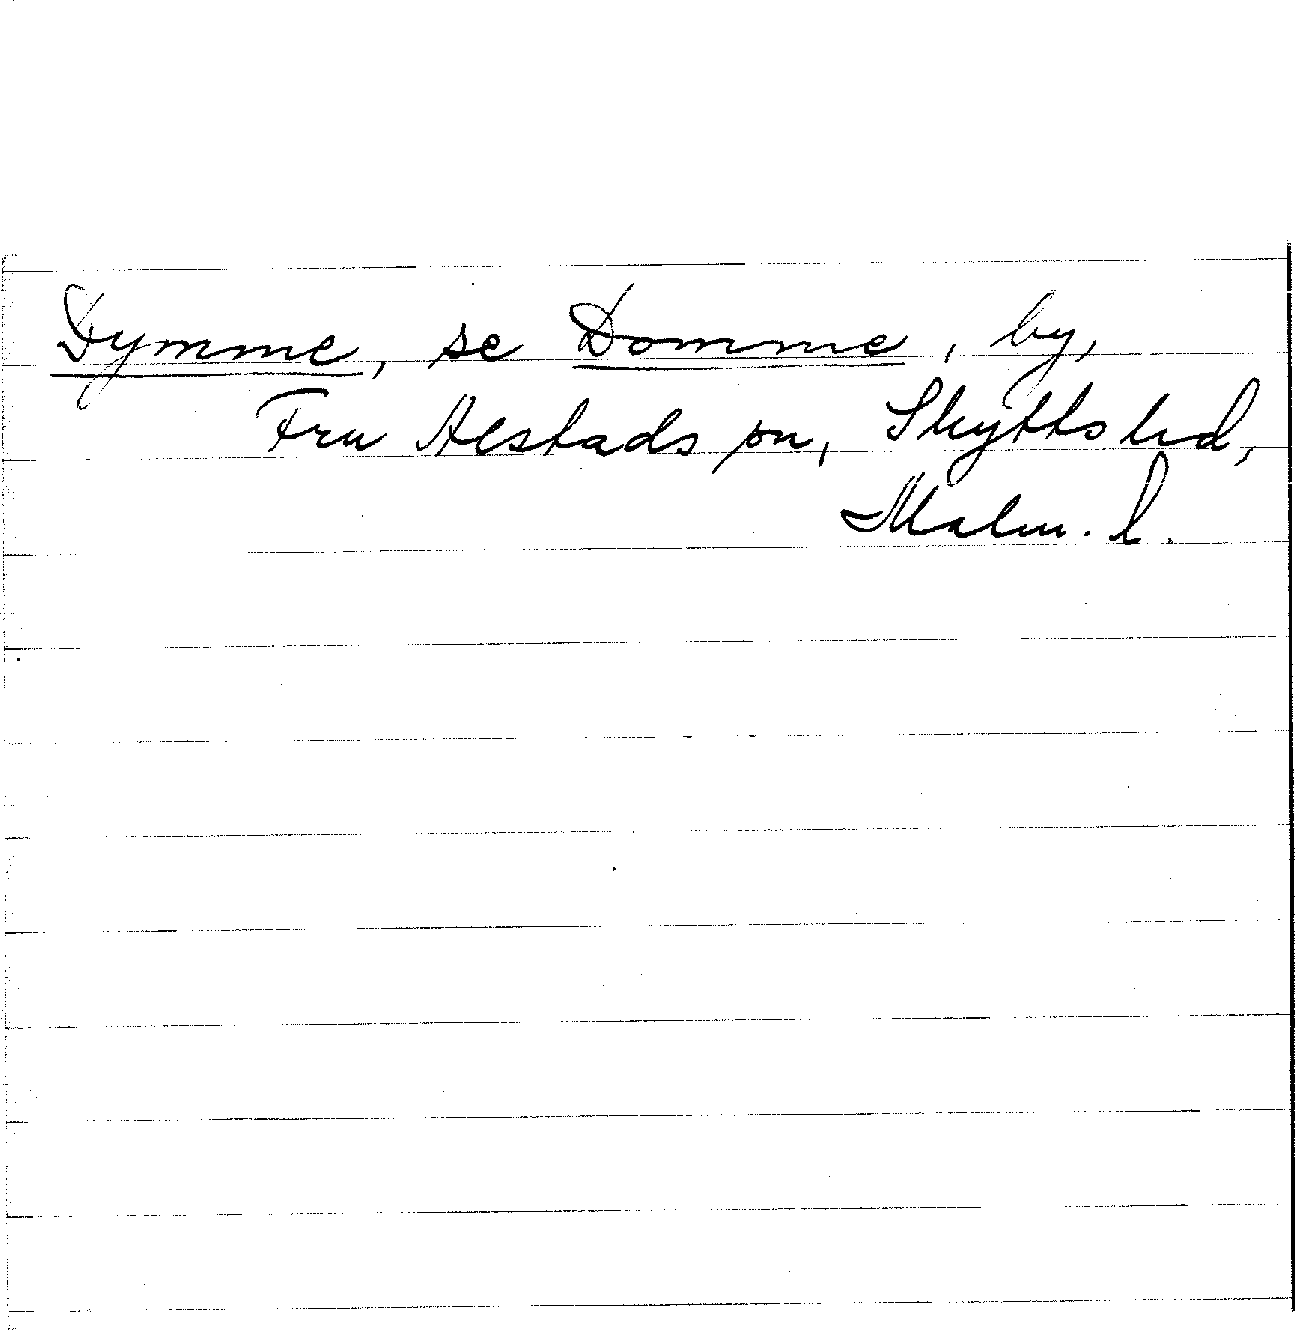 Dymme, se Domme, by,
Fru Alstads sn, Skytts hd,
Malm. l.